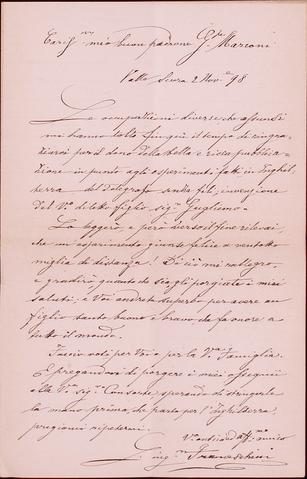 Cariss.mo mio buon padrone G.pe Marconi
Valle Scura 2 Nov.e 98
Le occupazioni diverse che assunsi
mi hanno tolto finquì il tempo di ringra-
ziarvi per il dono della bella e ricca pubblica-
zione in punto agli esperimenti fatti in Inghil-
terra del Telegrafo senza fili, invenzione
del V.o diletto figlio sig.r Guglielmo.
La leggerò, e però verso il fine rilevai,
che un esperimento giunse felice a ventotto
miglia di distanza! Di ciò mi rallegro,
e gradirò quanto che sia gli porgiate i miei
saluti; e Voi andrete superbo per avere un
figlio tanto buono e bravo, che fa onore a
tutto il mondo.
Faccio voti per Voi e per la V.a Famiglia.
E pregandovi di porgere i miei ossequii
alla V.a sig.a Consorte, sperando di stringerle
la mano prima, che parta per l'Inghilterra,
pregiomi ripetermi.
V.o antico ed aff.mo amico
Ing.r Franceschini